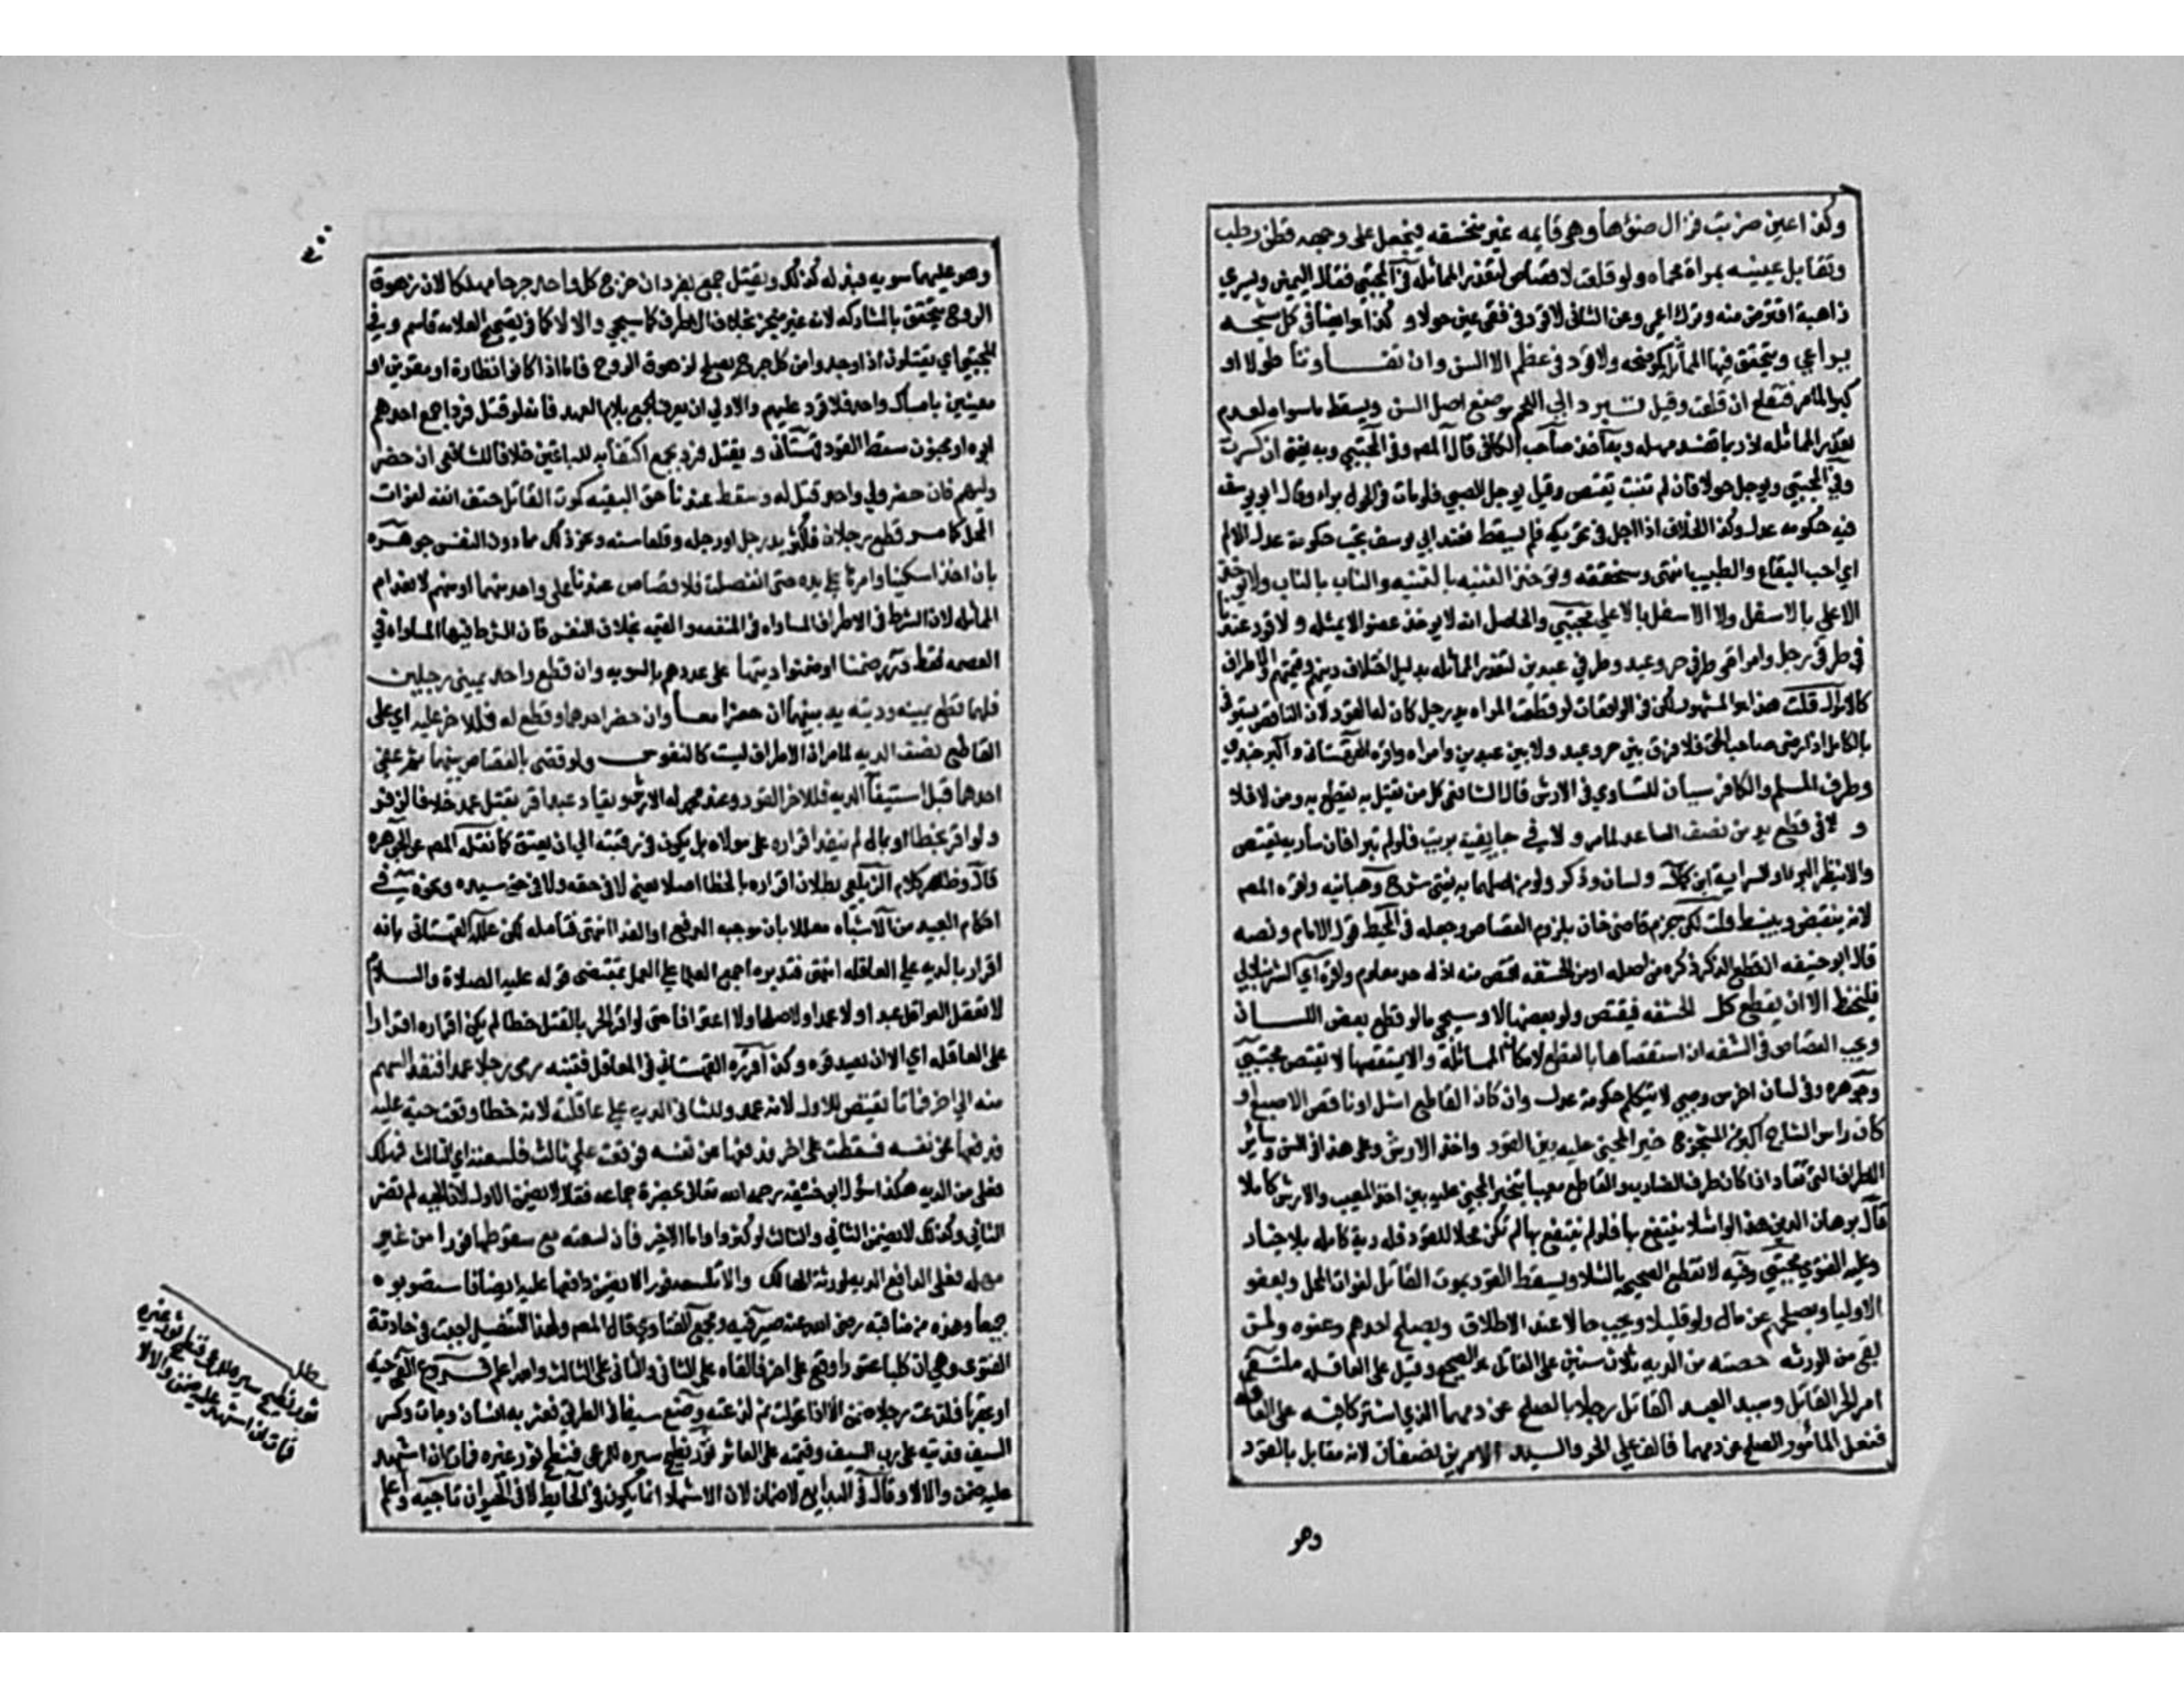 وكذا عين ضربت فزال ضوءها وهي قايمه غير منخسفه فيجعل على وجهه قطن رطب
وتقابل عينه بمراة محماه ولو قلعت لا قصاص لتعذر المماثله في المجتبي فقأ اليمنى ويسري
ذاهبة اقتص منه وترك اعمي وعن الثاني لا قود في فقئ عين حولا و كذا هو ايضا في كل شجه
يراعي ويتحقق فيها المماثله كموضحه ولا قود في عظم الا السن وان تفاوتا طولا او
كبرا لما مر فتقلع ان قلعت وقيل تبرد الي اللحم موضع اصل السن ويسقط ما سواه لعدم
تعذر المماثله اذ ربما تفسد مهله وبه اخذ صاحب الكافي قال المص وفي المجتبي وبه يفتي ان كسرت
وفي المجتبي ويوجل حولا فان لم تنبت يقتص وقيل يوجل الصبي فلو مات في الحول برا وقال ابو يوسف
فيه حكومه عدل وكذا الخلاف اذا اجل في تحريكه فلم يسقط فعند ابي يوسف تجب حكومة عدل الالم
اي اجر القلاع والطبيب انتهى وسنحققه وتؤخذ الثنيه بالثنيه والناب بالناب ولا يؤخذ
الاعلى بالاسفل ولا الاسفل بالاعلي مجتبي والحاصل انه لا يوخذ عضو الا بمثله و لا قود عندنا
في طرفي رجل وامراة و طرفي حر وعبد وطرفي عبدين لتعذر المماثله بدليل اختلاف ديتهم وقيمتهم والاطراف
كالاموال قلت هذا هو المشهور لكن في الواقعات لو قطعت المراه يد رجل كان له القود لان الناقص يستوفي
بالكامل اذا رضي صاحب الحق فلا فرق بين حر وعبد ولا بين عبدين وامراه واقره القهستاني و البرجندي
وطرف المسلم والكافر سيان للتساوي في الارش قال الشافعي كل من يقتل به يقطع به ومن لا فلا
و لا في قطع يد من نصف الساعد لما مر و لا في جايفة بريت فلو لم تبرا فان ساريه يقتص
والا ينتظر البرء او السراية ابن كمال و لسان وذكر ولو من اصلهما به يفتي شرح وهبانيه واقره المص
لانه ينقبض وينبسط قلت لكن جزم قاضي خان بلزوم القصاص وجعله في المحيط قول الامام ونصه
قال ابو حنيفه ان قطع الذكر ذكره من اصله او من الحشفه اقتص منه اذ له حد معلوم واقره الشرنبلالي
فليحفظ الا ان يقطع كل الحشفه فيقتص ولو بعضها لا وسيجي ما لو قطع بعض اللسان
ويجب القصاص في الشفه ان استقصاها بالقطع لامكان المماثلة والا يستقصها لا يقتص مجتبي
وجوهره وفي لسان اخرس وصبي لا يتكلم حكومة عدل وان كان القاطع اشل او ناقص الاصبع او
كان راس الشاج اكبر من المشجوج خير المجني عليه بين القود واخذ الارش وعلى هذا في السن وسائر
الاطراف التي تقاد اذا كان طرف الضارب والقاطع معيبا يتخير المجني عليه بين اخذ المعيب والارش كاملا
قال برهان الدين هذا لو الشلا ينتفع بها فلو لم ينتفع بها لم تكن محلا للقود فله دية كامله بلا خيار
وعليه الفتوي مجتبي وفيه لا تقطع الصحيحه بالشلا ويسقط القود بموت القاتل لفوات المحل وبعفو
الاوليا وبصلحهم عن مال ولو قليلا ويجب حالا عند الاطلاق وبصلح احدهم وعفوه ولمن
بقي من الورثه حصته من الديه في ثلاث سنين على القاتل هو الصحيح وقيل على العاقله ملتقي
امر الحر القاتل وسيد العبد القاتل رجلا بالصلح عن دمهما الذي اشتركا فيه على الف
ففعل المامور الصلح عن دمهما فالف علي الحر والسيد الامرين نصفان لانه مقابل بالقود
وهو
وهو عليهما سويه فبدله كذلك ويقتل جمع بفرد ان جرح كل واحد جرحا مهلكا لان زهوق
الروح يتحقق بالمشاركه لانه غير متجز بخلاف الاطراف كما سيجي والا لا كما في تصحيح العلامه قاسم وفي
المجتبي اي يقتلون اذا وجد من كل جرح يصلح لزهوق الروح فاما اذا كانوا نظارة او مغرين او
معينين بامساك واحد فلا قود عليهم والاولي ان يعرف الجمع بلام العهد فانه لو قتل فرد جمع احدهم
ابوه او مجنون سقط القود قهستاني و يقتل فرد بجمع اكتفاء به للباقين خلافا للشافعي ان حضر
وليهم فان حضر ولي واحد قتل له وسقط عندنا حق البقيه كموت القاتل حتف انفه لفوات
المحل كما مر قطع رجلان فاكثر يد رجل او رجله وقلعا سنه ونحو ذلك مما دون النفس جوهره
بان اخذا سكينا وامراها علي يده حتى انفصلت فلا قصاص عندنا على واحد منهما او منهم لانعدام
المماثله لان الشرط في الاطراف المساواه في المنفعه والقيمه بخلاف النفس فان الشرط فيها المساواه في
العصمه فقط درر وضمنا او ضمنوا ديتها على عددهم بالسويه وان قطع واحد يميني رجلين
فلهما قطع يمينه ودية يد بينهما ان حضرا معا وان حضر احدهما وقطع له فللاخر عليه اي على
القاطع نصف الديه لما مر ان الاطراف ليست كالنفوس ولو قضي بالقصاص بينهما ثم عفي
احدهما قبل استيفاء الديه فللاخر القود وعند محمد له الارش ويقاد عبد اقر بقتل عمد خلافا لزفر
ولو اقر بخطا او بمال لم ينفذ اقراره على مولاه بل يكون في رقبته الي ان يعتق كما نقله المص عن الجوهره
قال وظاهر كلام الزيلعي بطلان اقراره بالخطا اصلا يعني لا في حقه ولا في حق سيده ونحوه في
احكام العبيد من الاشباه معللا بان موجبه الدفع او الفدا انتهى فتامله لكن علله القهستاني بانه
اقرار بالديه علي العاقله انتهى فتدبره اجمع العلما علي العمل بمقتضى قوله عليه الصلاة والسلام
لا تعقل العواقل عبدا ولا عمدا ولا صلحا ولا اعترافا حتى لو اقر الحر بالقتل خطا لم يكن اقراره اقرارا
على العاقله اي الا ان يصدقوه وكذا قرره القهستاني في المعاقل فتنبه رمى رجلا عمدا فنفذ السهم
منه الي اخر فماتا يقتص للاول لانه عمد وللثاني الديه علي عاقلته لانه خطا وقعت حية عليه
فدفعها عن نفسه فسقطت على اخر فدفعها عن نفسه فوقعت علي ثالث فلسعته اي الثالث فهلك
فعلى من الديه هكذا سئل ابو حنيفه رحمه الله تعالى بحضرة جماعه فقال لا يضمن الاول لان الحيه لم تضر
الثاني وكذلك لا يضمن الثاني والثالث لو كثروا واما الاخير فان لسعته مع سقوطها فورا من غير
مهله فعلي الدافع الديه لورثة الهالك والا تلسعه فورا لا يضمن دافعها عليه ايضا فاستصوبوه
جميعا وهذه من مناقبه رضي الله عنه صيرفيه ومجمع الفتاوي قال المص ولهذا التفصيل اجبت في حادثة
الفتوى وهي ان كلبا عقورا وقع على اخر فالقاه على الثاني والثاني على الثالث والله اعلم فروع القى حية
او عقربا فلدغت رجلا ضمن الا اذا تحولت ثم لدغته وضع سيفا في الطريق فعثر به انسان ومات وكسر
السيف فديته على رب السيف وقيمته على العاثر ثور نطوح سيره للمرعى فنطح ثور غيره فمات ان اشهد
عليه ضمن والا لا وقال في البدايع لا ضمان لان الاشهاد انما يكون في الحايط لا في الحيوان تاجيه واعلم
مطلب
ثور نطوح سيره للمرعى فنطح ثور غيره
فمات ان اشهد عليه ضمن والا لا